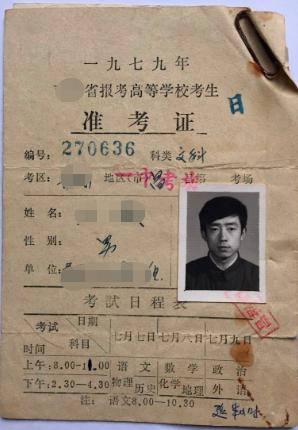 一九七九年
省报考高等学校考生
日
准考证
编号: 270636 科类 文科
考区: 地区(市 考场
姓名:
性别: 男
单位:
考試日程表
考试 日期 七月七日 七月八日 七月九日
时间 科目
上午:8.00-11.00 语文 数学 政治
下午:2.30-4.30 物理 历史 化学 地理 外语
注: 语文8.00—10.30